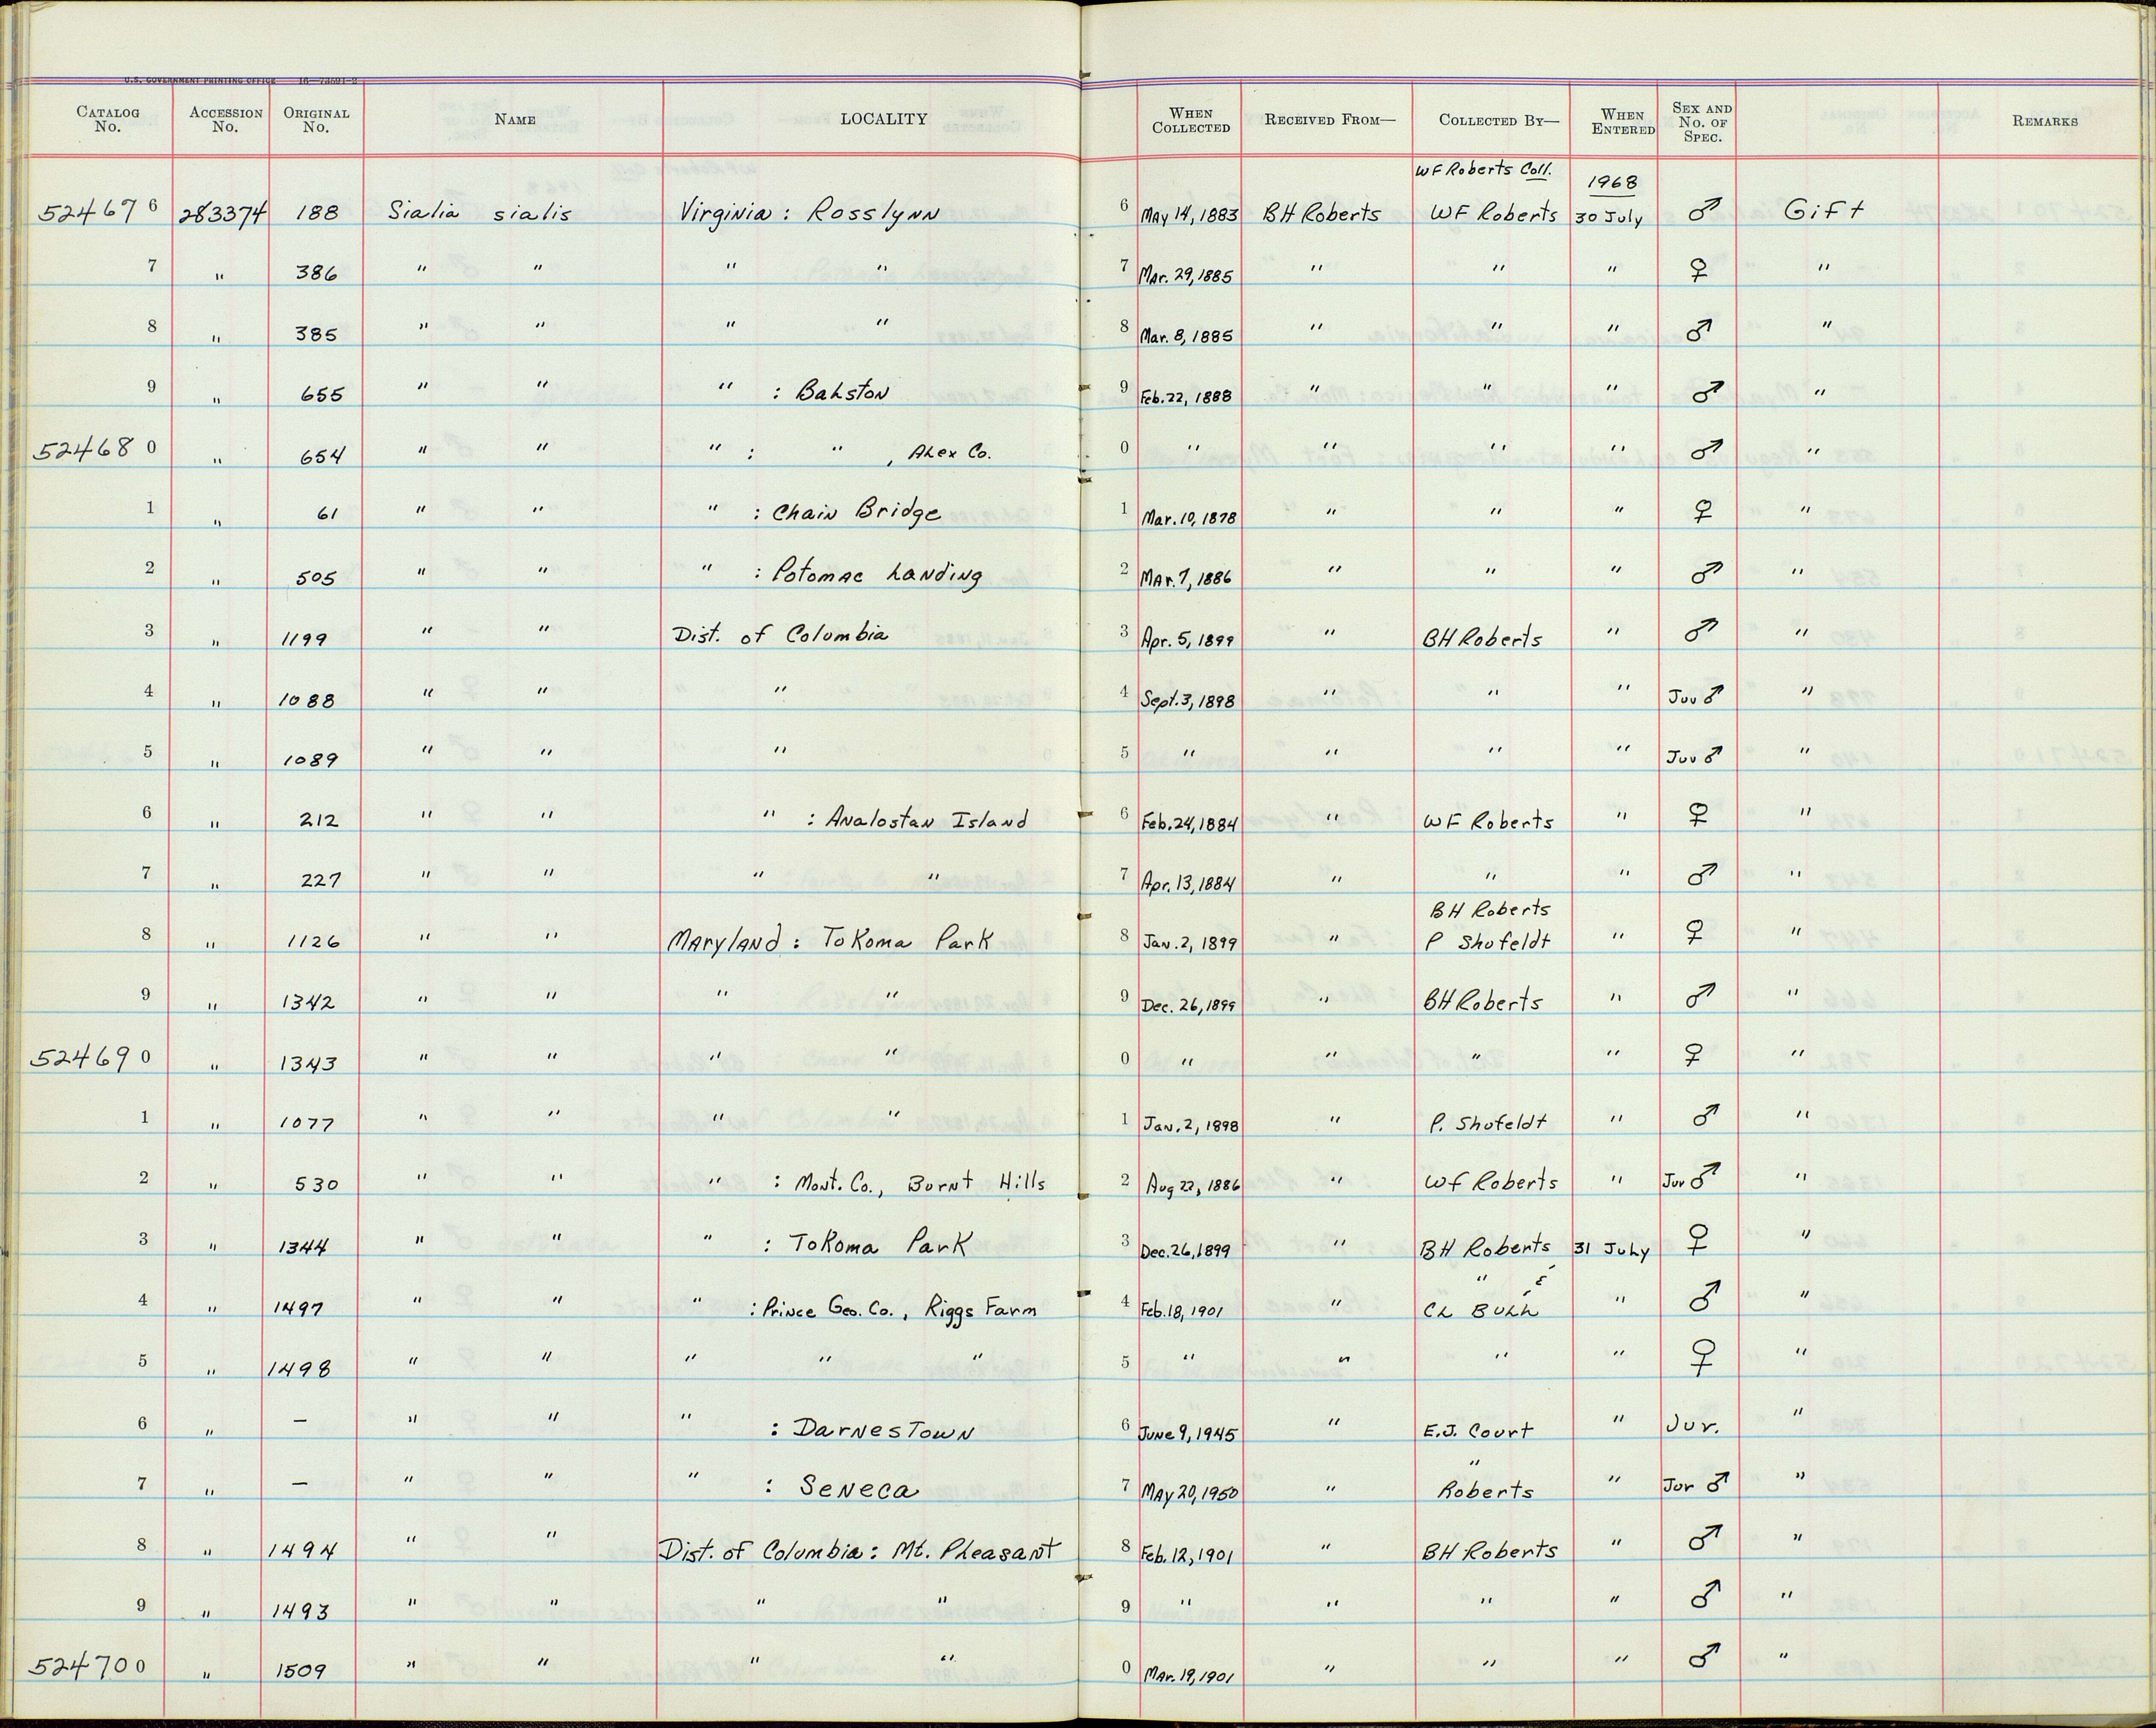 U.S. GOVERNMENT PRINTING OFFICE 16—73591-2
CATALOG No. ACCESSION No. ORIGINAL No. NAME LOCALITY WHEN COLLECTED RECEIVED FROM— COLLECTED BY— WHEN ENTERED SEX AND No. OF SPEC. REMARKS
WF Roberts Coll. 1968
524676 283374 188 Sialia sialis Virginia : Rosslynn 6 May 14, 1883 BH Roberts WF Roberts 30 July ♂ Gift
7 " 386 " " " " 7 Mar. 29, 1885 " " " ♀ "
8 " 385 " " " " 8 Mar. 8, 1885 " " " ♂ "
9 " 655 " " " : Balston 9 Feb. 22, 1888 " " " ♂ "
524680 " 654 " " " : " , Alex Co. 0 " " " " ♂ "
1 " 61 " " " : Chain Bridge 1 Mar. 10, 1878 " " " ♀ "
2 " 505 " " " : Potomac Landing 2 Mar. 7, 1886 " " " ♂ "
3 " 1199 " " Dist. of Columbia 3 Apr. 5, 1899 " BH Roberts " ♂ "
4 " 1088 " " " 4 Sept. 3, 1898 " " " Juv ♂ "
5 " 1089 " " " 5 " " " " Juv ♂ "
6 " 212 " " " : Analostan Island 6 Feb. 24, 1884 " WF Roberts " ♀ "
7 " 227 " " " " 7 Apr. 13, 1884 " " " ♂ "
BH Roberts
8 " 1126 " " Maryland : Tokoma Park 8 Jan. 2, 1899 " P Shufeldt " ♀ "
9 " 1342 " " " " 9 Dec. 26, 1899 " BH Roberts " ♂ "
524690 " 1343 " " " " 0 " " " " ♀ "
1 " 1077 " " " " 1 Jan. 2, 1898 " P. Shufeldt " ♂ "
2 " 530 " " " : Mont. Co., Burnt Hills 2 Aug 22, 1886 " WF Roberts " Juv ♂ "
3 " 1344 " " " : Tokoma Park 3 Dec. 26, 1899 " BH Roberts 31 July ♀ "
" &
4 " 1497 " " " : Prince Geo. Co., Riggs Farm 4 Feb. 18, 1901 " CL Bull " ♂ "
5 " 1498 " " " " " 5 " " " " ♀ "
6 " — " " " : Darnestown 6 June 9, 1945 " E.J. Court " Juv. "
"
7 " — " " " : Seneca 7 May 20, 1950 " Roberts " Juv ♂ "
8 " 1494 " " Dist. of Columbia : Mt. Pleasant 8 Feb. 12, 1901 " BH Roberts " ♂ "
9 " 1493 " " " " 9 " " " " ♂ "
524700 " 1509 " " " " 0 Mar. 19, 1901 " " " ♂ "